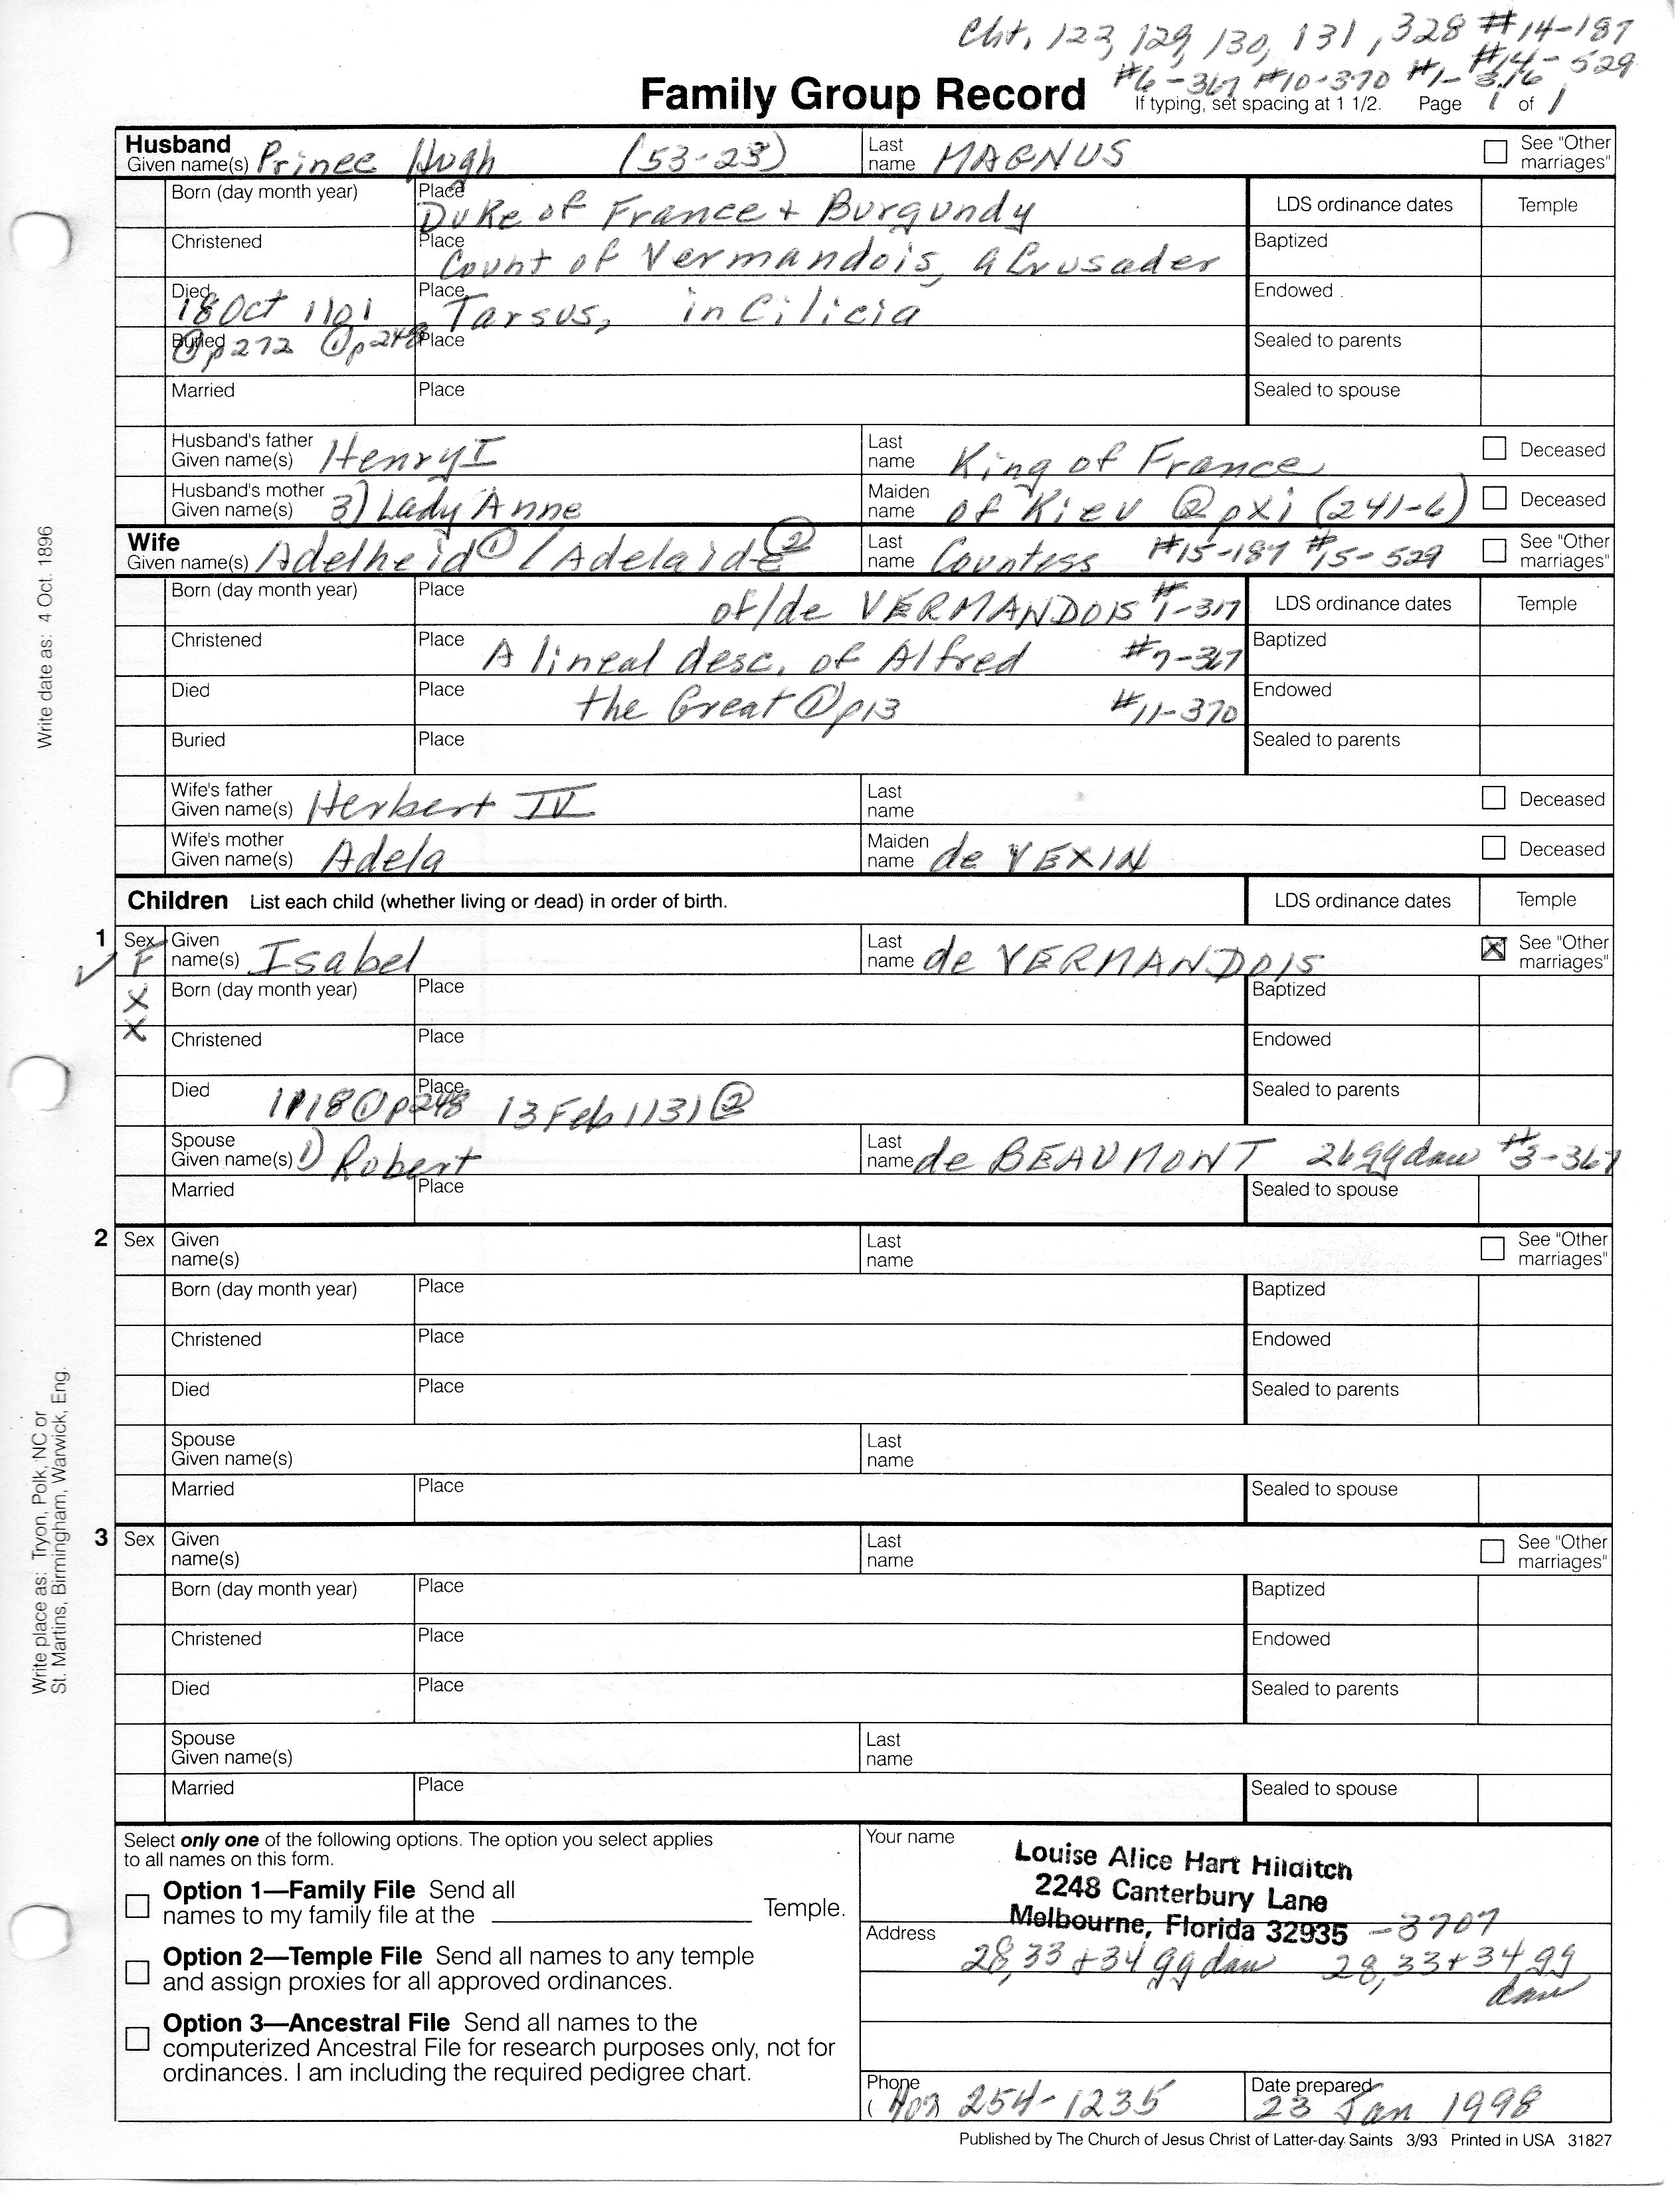 Cht. 123, 129, 130, 131, 328 #14-187
#14-529
#6-367 #10-370 #1-316
Family Group Record
If typing, set spacing at 1 1/2. Page 1 of 1
Husband
Given name(s) Prince Hugh (53-23) Last name MAGNUS See "Other marriages"
Born (day month year) Place Duke of France + Burgundy LDS ordinance dates Temple
Christened Place Count of Vermandois, a Crusader Baptized
Died 18 Oct 1101 Place Tarsus, in Cilicia Endowed
Buried ①p272 ①p248 Place Sealed to parents
Married Place Sealed to spouse
Husband's father Given name(s) Henry I Last name King of France Deceased
Husband's mother Given name(s) 3) Lady Anne Maiden name of Kiev ②pxi (241-6) Deceased
Wife
Given name(s) Adelheid① / Adelaide② Last name Countess #15-187 #15-529 See "Other marriages"
Born (day month year) Place of/de VERMANDOIS #1-317 LDS ordinance dates Temple
Christened Place A lineal desc. of Alfred #7-367 Baptized
Died Place the Great ①p13 #11-370 Endowed
Buried Place Sealed to parents
Wife's father Given name(s) Herbert IV Last name Deceased
Wife's mother Given name(s) Adela Maiden name de VEXIN Deceased
Children List each child (whether living or dead) in order of birth. LDS ordinance dates Temple
1 Sex F Given name(s) Isabel Last name de VERMANDOIS See "Other marriages"
X Born (day month year) Place Baptized
X Christened Place Endowed
Died 1118 ①p248 Place 13 Feb 1131 ② Sealed to parents
Spouse Given name(s) 1) Robert Last name de BEAUMONT 26 gg dau #3-367
Married Place Sealed to spouse
2 Sex Given name(s) Last name See "Other marriages"
Born (day month year) Place Baptized
Christened Place Endowed
Died Place Sealed to parents
Spouse Given name(s) Last name
Married Place Sealed to spouse
3 Sex Given name(s) Last name See "Other marriages"
Born (day month year) Place Baptized
Christened Place Endowed
Died Place Sealed to parents
Spouse Given name(s) Last name
Married Place Sealed to spouse
Select only one of the following options. The option you select applies
to all names on this form.
Option 1—Family File Send all
names to my family file at the Temple.
Option 2—Temple File Send all names to any temple
and assign proxies for all approved ordinances.
Option 3—Ancestral File Send all names to the
computerized Ancestral File for research purposes only, not for
ordinances. I am including the required pedigree chart.
Your name
Louise Alice Hart Hilditch
2248 Canterbury Lane
Melbourne, Florida 32935 -3707
Address
28, 33 + 34 gg dau 28, 33 + 34 gg
dau
Phone (407 254-1235
Date prepared 23 Jan 1998
Published by The Church of Jesus Christ of Latter-day Saints 3/93 Printed in USA 31827
Write date as: 4 Oct. 1896
Write place as: Tryon, Polk, NC or
St. Martins, Birmingham, Warwick, Eng.